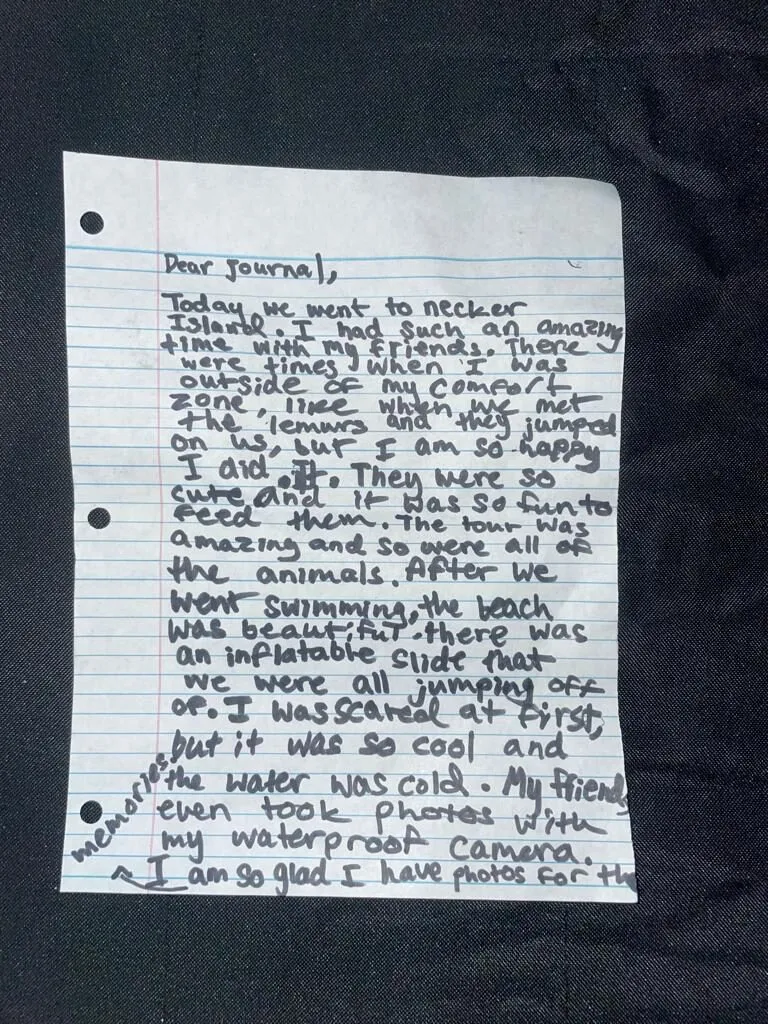 Dear Journal,
Today we went to necker
Island. I had such an amazing
time with my friends. There
were times when I was
outside of my comfort
zone, like when we met
the lemurs and they jumped
on us, but I am so happy
I did It. They were so
cute and it was so fun to
feed them. The tour was
amazing and so were all of
the animals. After we
went swimming, the beach
was beautiful. there was
an inflatable slide that
we were all jumping off
of. I was scared at first,
but it was so cool and
the water was cold. My friends
even took photos with
my waterproof camera.
I am so glad I have photos for the
memories.